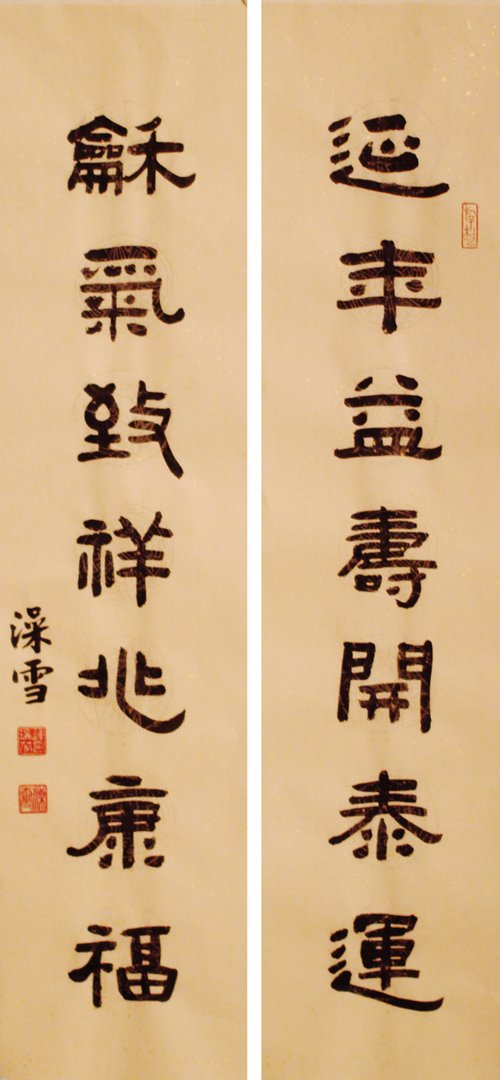 延年益壽開泰運
龢氣致祥兆康福
澡雪